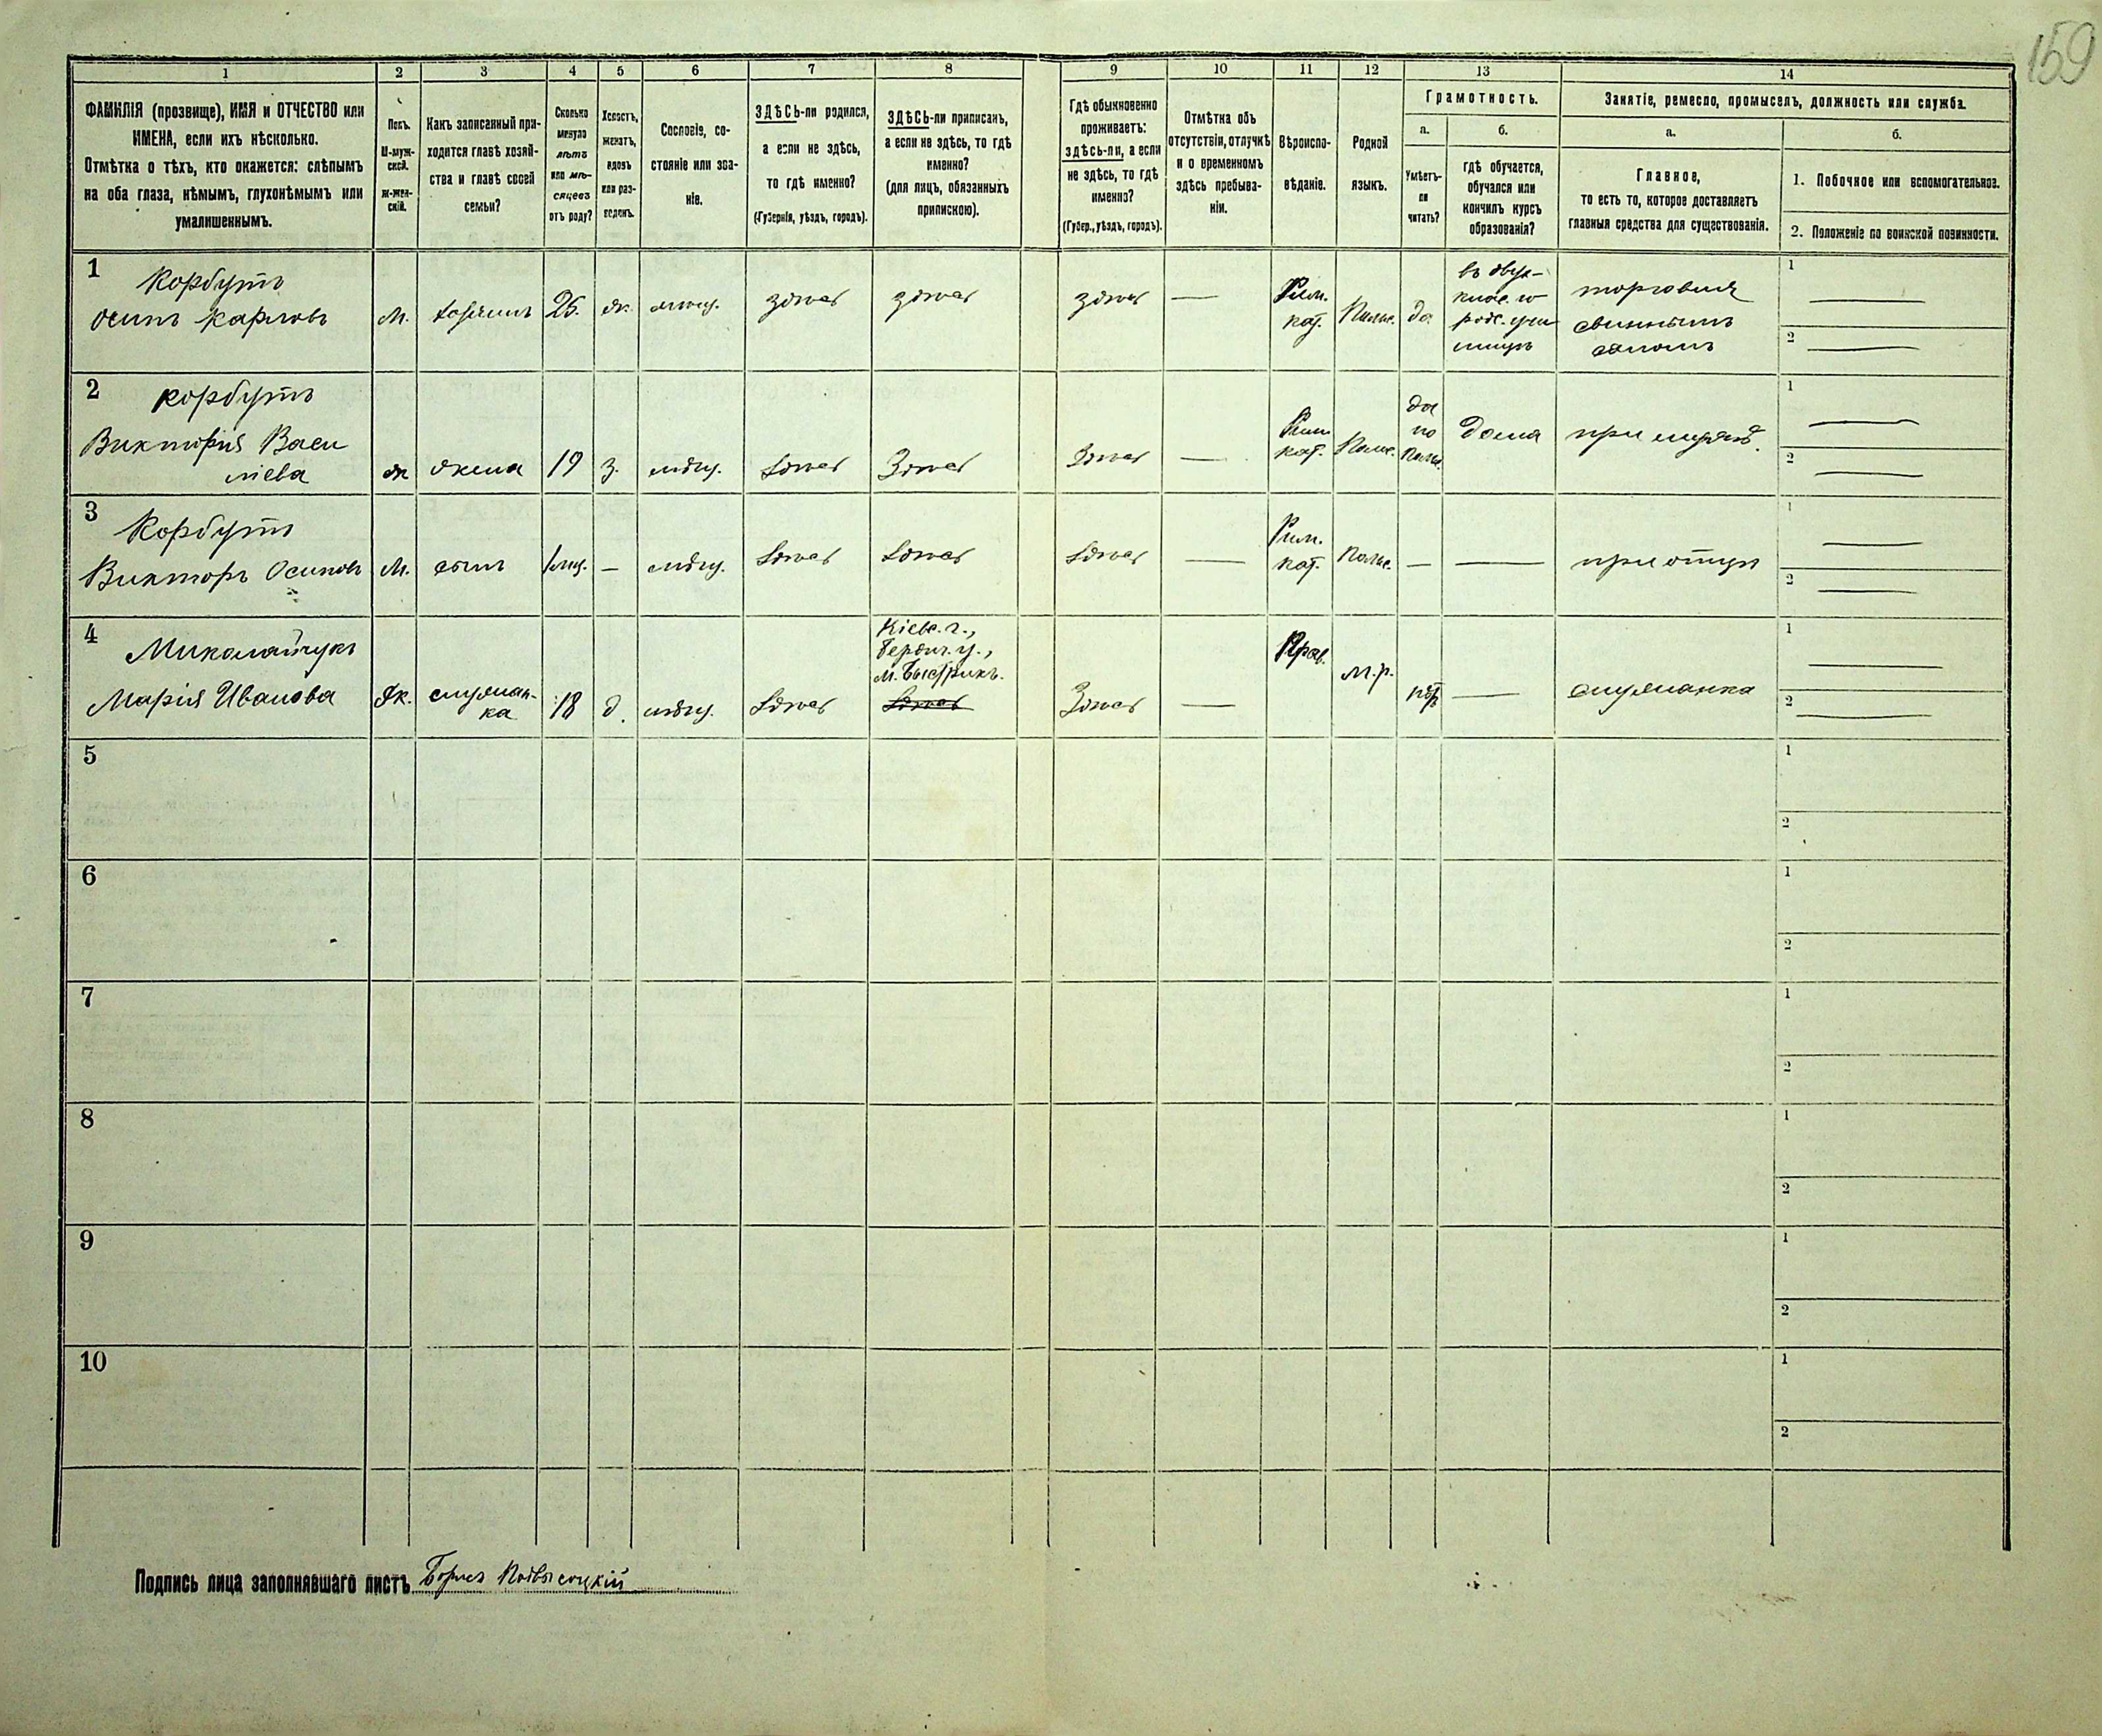 159
1 2 3 4 5 6 7 8 9 10 11 12 13 14
ФАМИЛІЯ (прозвище), ИМЯ и ОТЧЕСТВО или
ИМЕНА, если ихъ нѣсколько.
Отмѣтка о тѣхъ, кто окажется: слѣпымъ
на оба глаза, нѣмымъ, глухонѣмымъ или
умалишеннымъ.
Полъ.
М-муж-
ской.
Ж-жен-
скій.
Какъ записанный при-
ходится главѣ хозяй-
ства и главѣ своей
семьи?
Сколько
минуло
лѣтъ
или мѣ-
сяцевъ
отъ роду?
Холостъ,
женатъ,
вдовъ
или раз-
веденъ.
Сословіе, со-
стояніе или зва-
ніе.
ЗДѢСЬ-ли родился,
а если не здѣсь,
то гдѣ именно?
(Губернія, уѣздъ, городъ).
ЗДѢСЬ-ли приписанъ,
а если не здѣсь, то гдѣ
именно?
(для лицъ, обязанныхъ
припискою).
Гдѣ обыкновенно
проживаетъ:
здѣсь-ли, а если
не здѣсь, то гдѣ
именно?
(Губер., уѣздъ, городъ).
Отмѣтка объ
отсутствіи, отлучкѣ
и о временномъ
здѣсь пребыва-
ніи.
Вѣроиспо-
вѣданіе.
Родной
языкъ.
Грамотность.
а.
Умѣетъ-
ли
читать?
б.
гдѣ обучается,
обучался или
кончилъ курсъ
образованія?
Занятіе, ремесло, промыселъ, должность или служба.
а.
Главное,
то есть то, которое доставляетъ
главныя средства для существованія.
б.
1. Побочное или вспомогательное.
2. Положеніе по воинской повинности.
1
Корбутъ
Осипъ Карловъ
М.
хозяинъ
25.
ж.
мѣщ.
здѣсь
здѣсь
здѣсь
—
Рим.
кат.
Польс.
да
въ двух-
клас. го
родс. учи
лищѣ
торговля
свиннымъ
саломъ
1 —
2 —
2
Корбутъ
Викторія Васи
лїева
ж
жена
19
з.
мѣщ.
здѣсь
здѣсь
здѣсь
—
Рим
кат.
Польс.
да
по
польс.
дома
при мужѣ.
1 —
2 —
3
Корбутъ
Викторъ Осиповъ
М.
сынъ
1 мц.
—
мѣщ.
здѣсь
здѣсь
здѣсь
—
Рим.
кат.
Польс.
—
—
при отцѣ
1 —
2 —
4
Миколайчукъ
Марія Иванова
Ж.
служан-
ка
18
д.
мѣщ.
здѣсь
Кіевс. г.,
Бердич. у.,
м. Быстрикъ.
здѣсь
здѣсь
—
Прав.
м.р.
нѣтъ
—
служанка
1 —
2 —
5
1
2
6
1
2
7
1
2
8
1
2
9
1
2
10
1
2
Подпись лица заполнявшаго листъ Борисъ Подвысоцкій